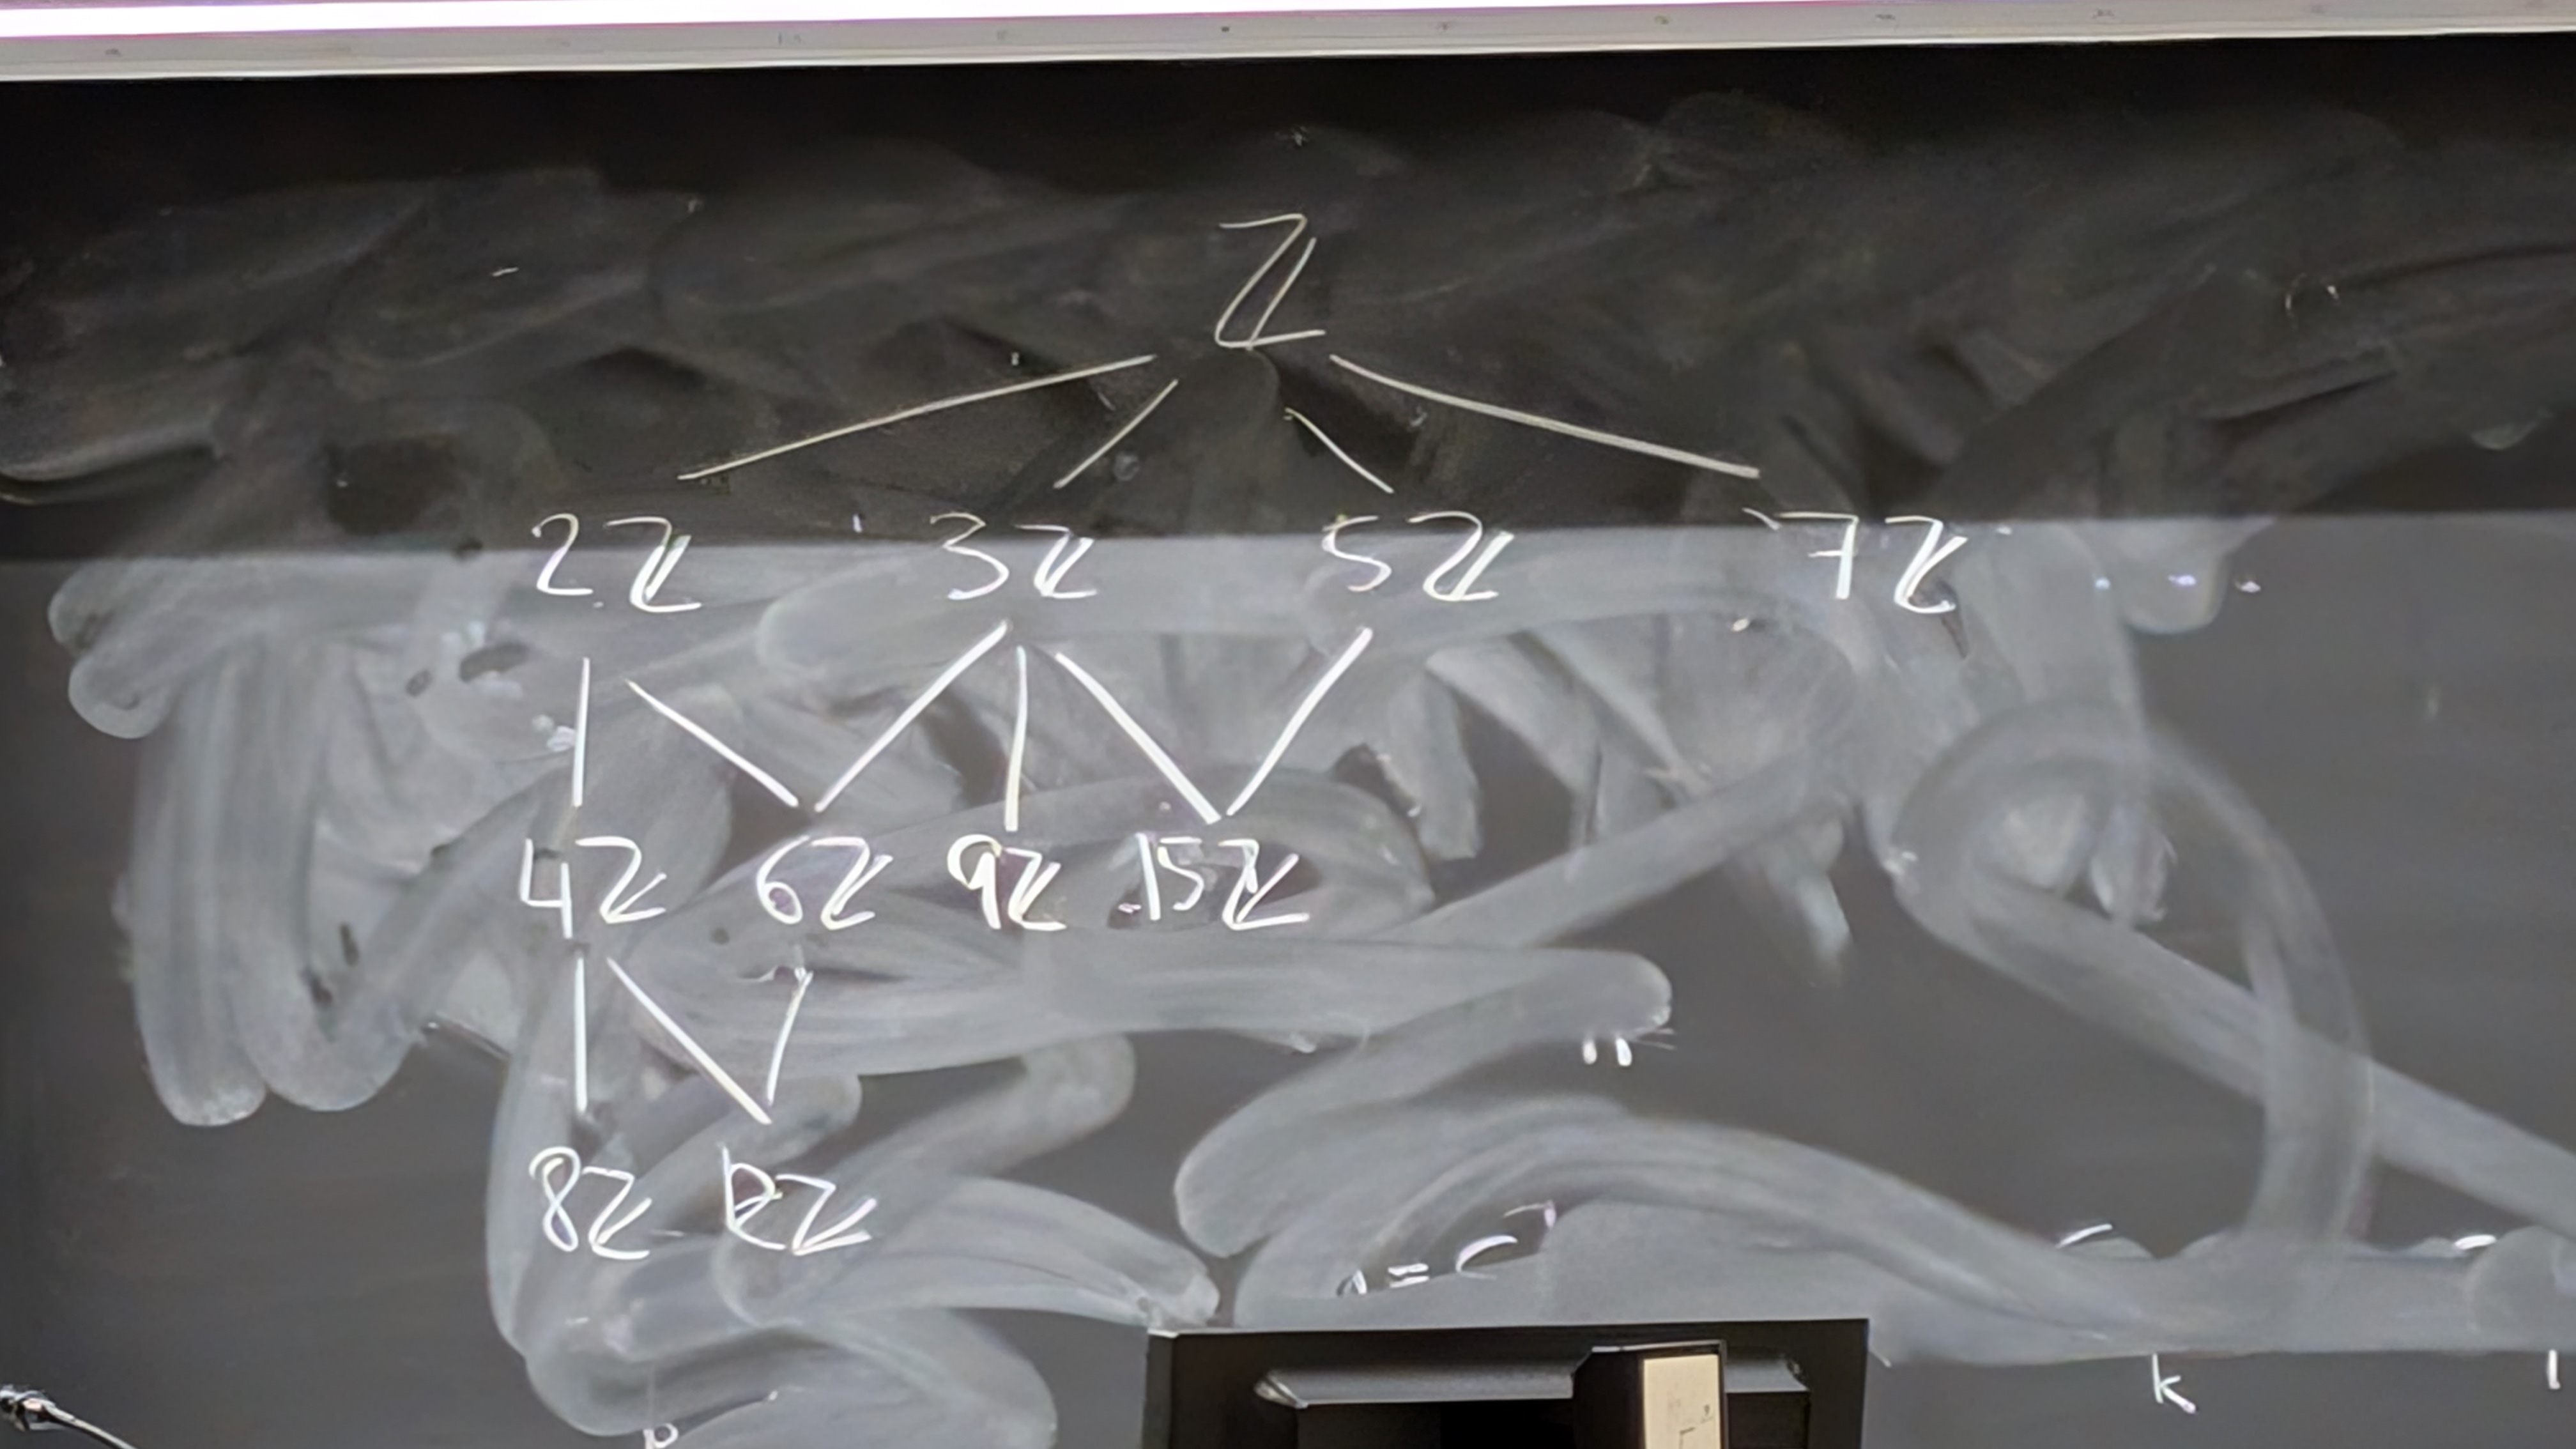 ℤ
2ℤ 3ℤ 5ℤ 7ℤ ...
4ℤ 6ℤ 9ℤ 15ℤ
8ℤ 12ℤ
k